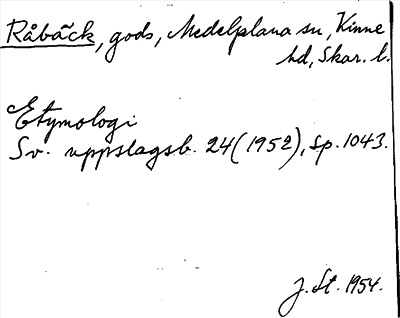 Råbäck, gods, Medelplana sn, Kinne
hd, Skar. l.
Etymologi
Sv. uppslagsb. 24 (1952), sp. 1043.
J. St. 1954.